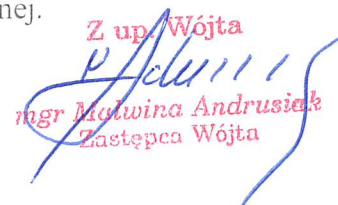 nej.
Z up. Wójta
mgr Malwina Andrusiak
Zastępca Wójta